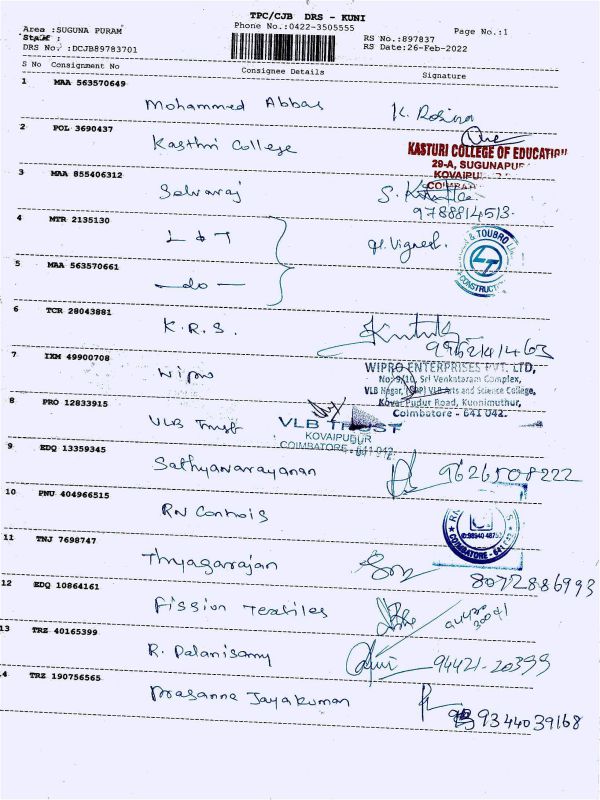 TPC/CJB DRS - KUNI
Area :SUGUNA PURAM Phone No.:0422-3505555 Page No.:1
Staff : RS No.:897837
DRS No. :DCJB89783701 RS Date:26-Feb-2022
S No Consignment No Consignee Details Signature
1 MAA 563570649
Mohammed Abbas K. Rosina
2 POL 3690437
Kasthri College
KASTURI COLLEGE OF EDUCATION
29-A, SUGUNAPUR
KOVAIPU
COIMBA
3 MAA 855406312
Selvaraj S.
9788814513.
4 MTR 2135130
L & T Vignesh.
& TOUBRO
LT
CONSTRUCT
5 MAA 563570661
—do—
6 TCR 28043881
K.R.S.
7 IXM 49900708
Wipro
WIPRO ENTERPRISES PVT. LTD,
No: 9/10, Sri Venkataram Complex,
VLB Nagar, (OPP) VLB Arts and Science College,
Kovai Pudur Road, Kunnimuthur,
Coimbatore - 641 042.
8 PRO 12833915
VLB Trust
VLB TRUST
KOVAIPUDUR
COIMBATORE - 641 042
9 EDQ 13359345
Sathyanarayanan 9626508222
10 PNU 404966515
RN Controls
COIMBATORE - 641
11 TNJ 7698747
Thyagarajan 8072886993
12 EDQ 10864161
Fission Textiles
13 TRZ 40165399
R. Palanisamy 94421-20399
14 TRZ 190756565
Prasanna Jayakumar 9344039168